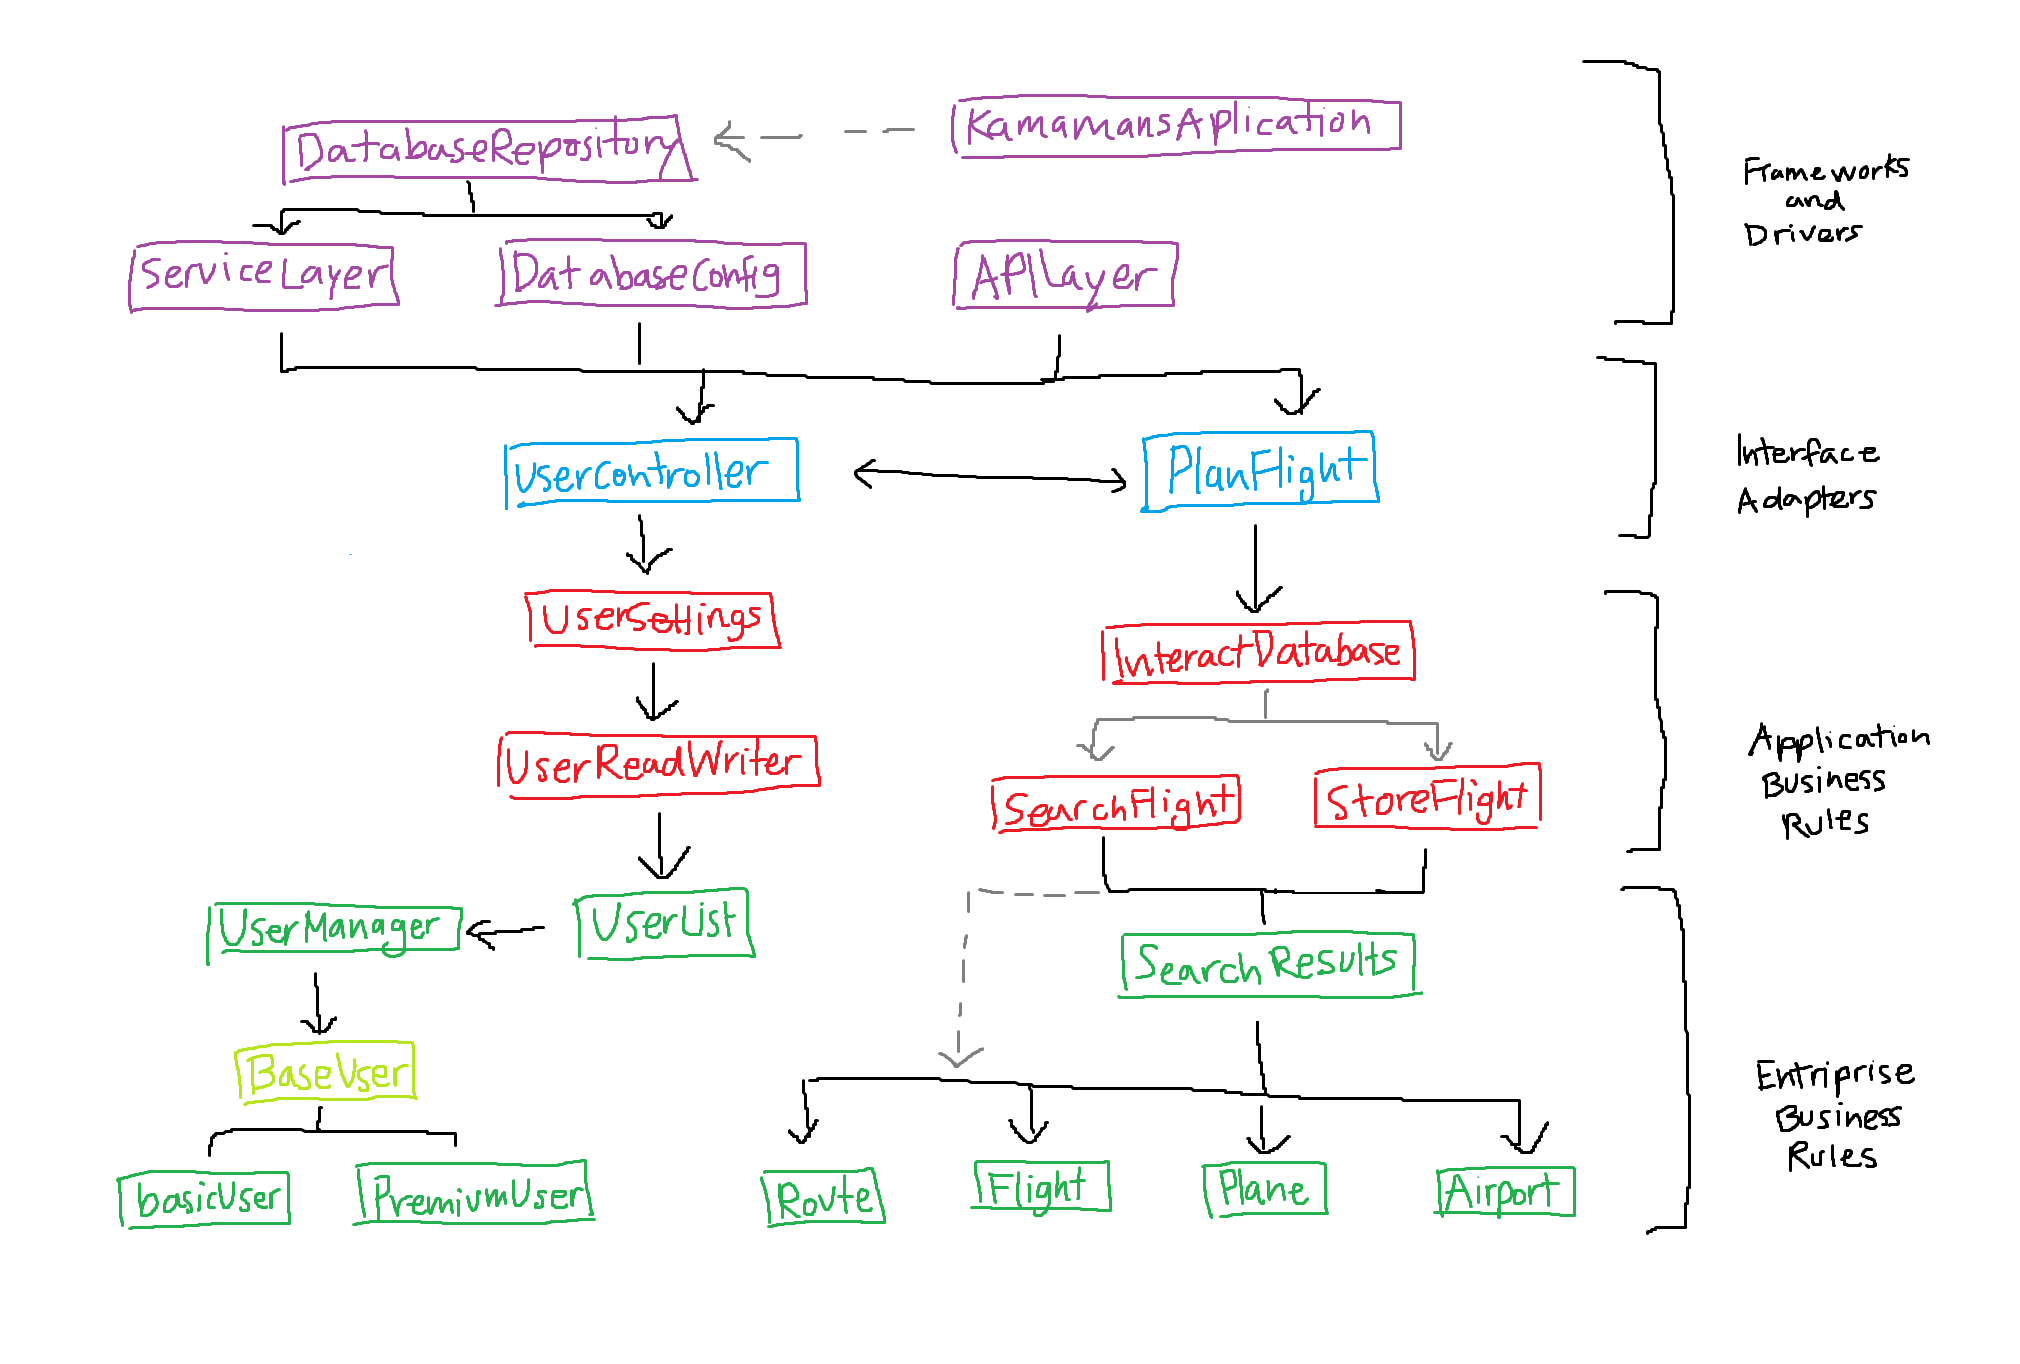 DatabaseRepository
KamamansAplication
ServiceLayer
DatabaseConfig
APILayer
Frameworks
and
Drivers
UserController
PlanFlight
Interface
Adapters
UserSettings
InteractDatabase
UserReadWriter
SearchFlight
StoreFlight
Application
Business
Rules
UserManager
UserList
SearchResults
BaseUser
basicUser
PremiumUser
Route
Flight
Plane
Airport
Entriprise
Business
Rules